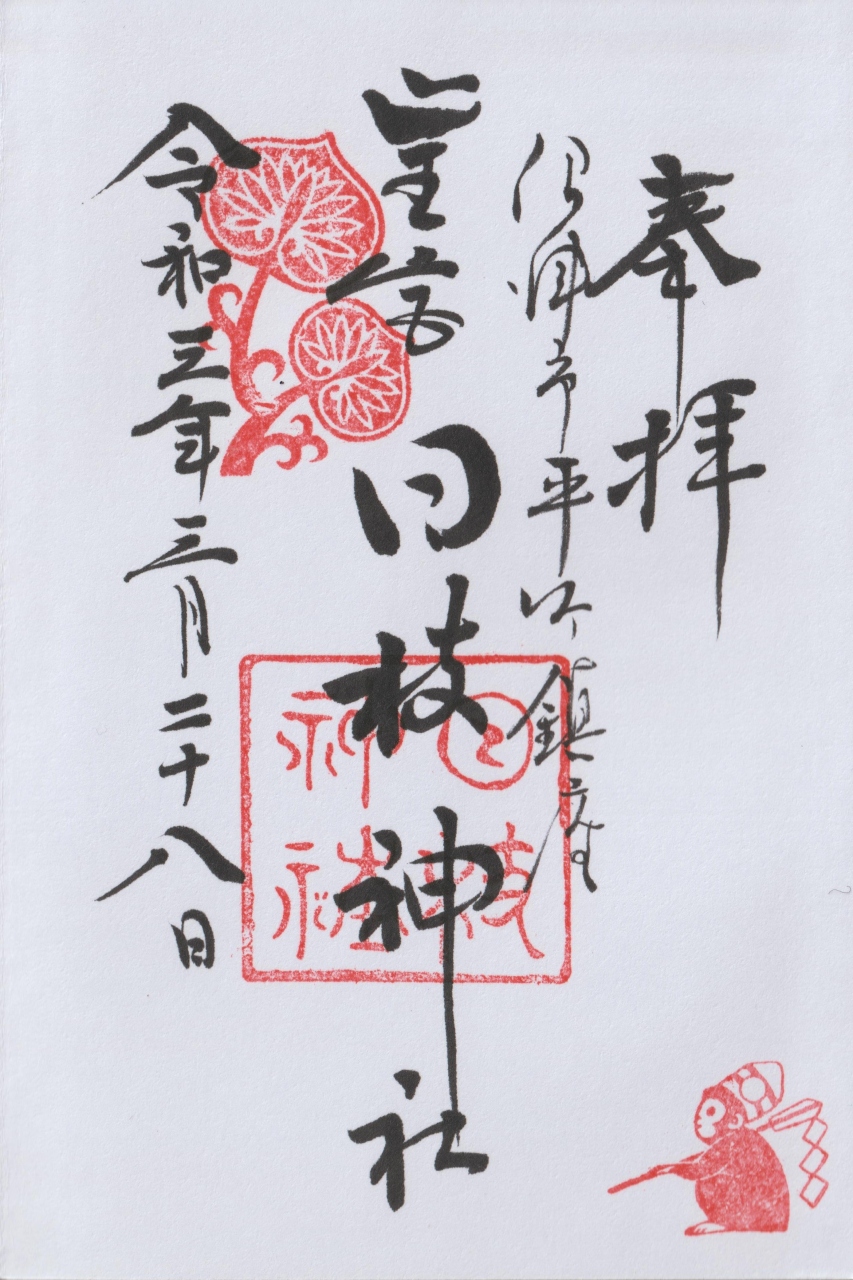 奉拝
沼津市平町鎮座
山王宮 日枝神社
令和三年三月二十八日
日枝
神社